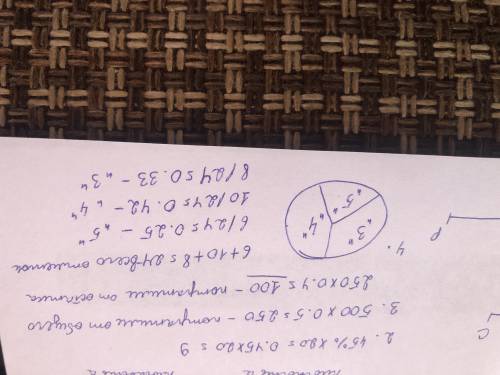 2. 45% × 20 = 0.45×20 = 9
3. 500 × 0.5 = 250 - потратили от общего
250×0.4 = 100 - потратили от остатка
4.
6+10+8 = 24 всего отметок
6/24 = 0.25 - "5"
10/24 = 0.42 - "4"
8/24 = 0.33 - "3"
"3"
"4"
"5"
C
P